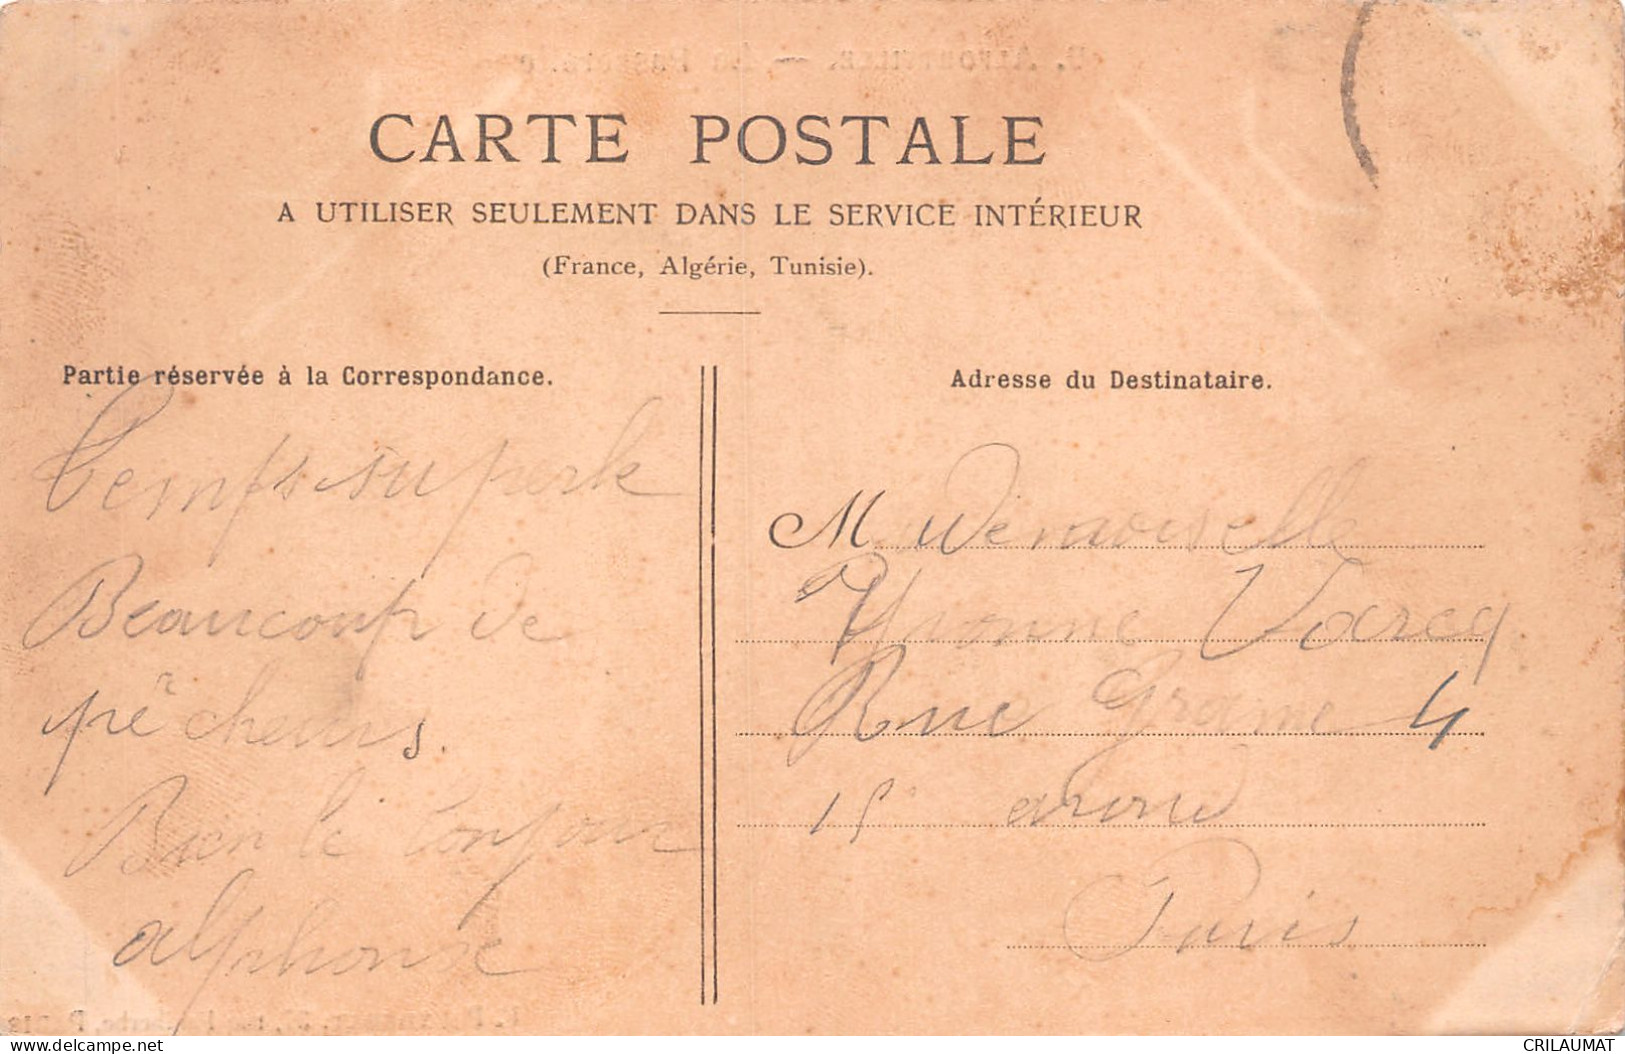 CARTE POSTALE
A UTILISER SEULEMENT DANS LE SERVICE INTÉRIEUR
(France, Algérie, Tunisie).
Partie réservée à la Correspondance.
Temps superbe
Beaucoup de
pêcheurs.
Bien le bonjour
alphonse
Adresse du Destinataire.
M Demoiselle
Yvonne Varcq
Rue Grame 4
15 arond
Paris
www.delcampe.net
CRILAUMAT